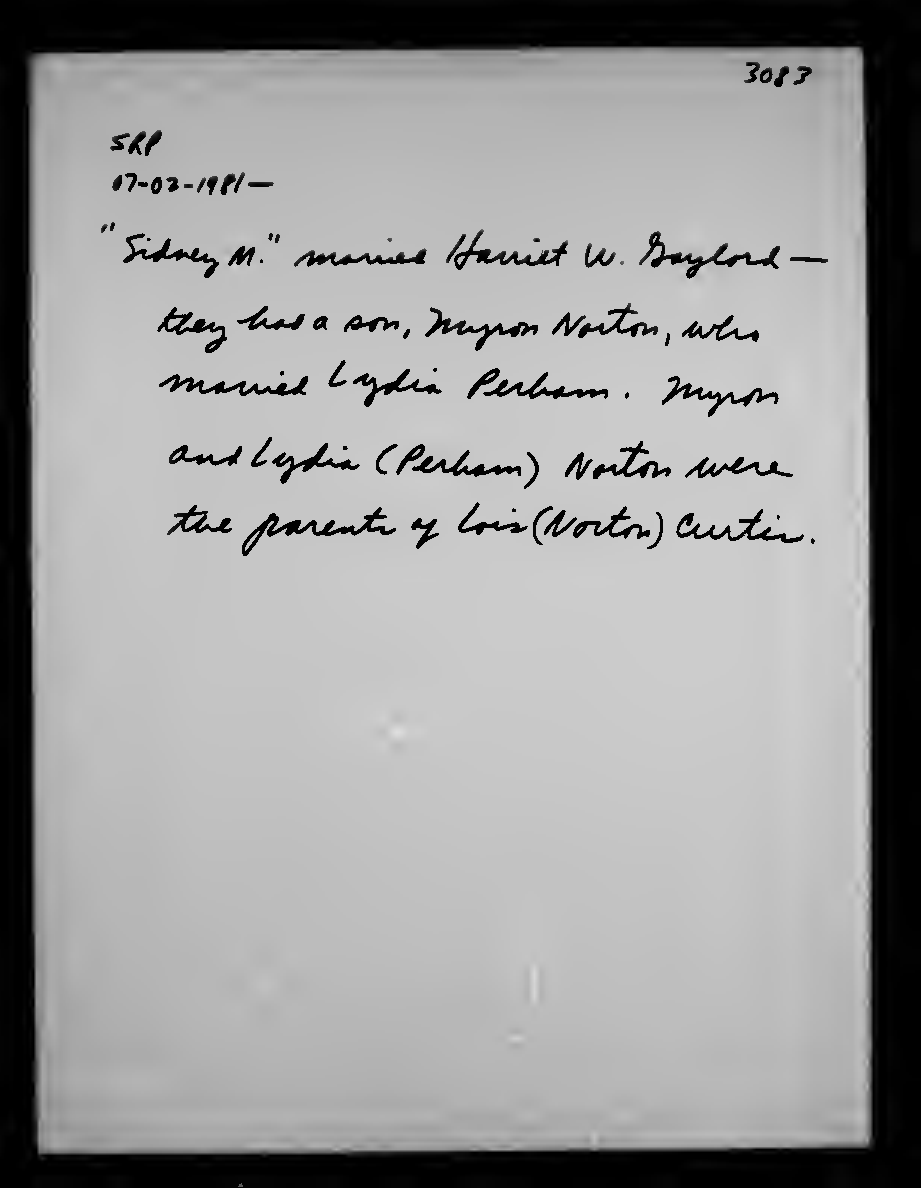 3083
SRP
07-02-1981—
"Sidney M." married Harriet W. Gaylord —
they had a son, Myron Norton, who
married Lydia Perham. Myron
and Lydia (Perham) Norton were
the parents of Lois (Norton) Curtis.